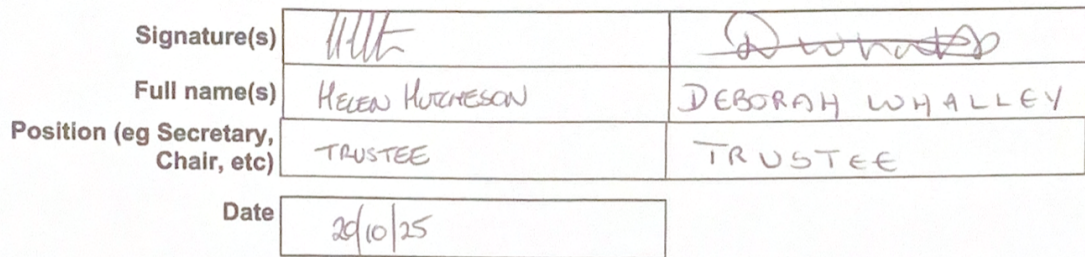 Signature(s)
Full name(s) HELEN HUTCHESON DEBORAH WHALLEY
Position (eg Secretary,
Chair, etc) TRUSTEE TRUSTEE
Date 20/10/25